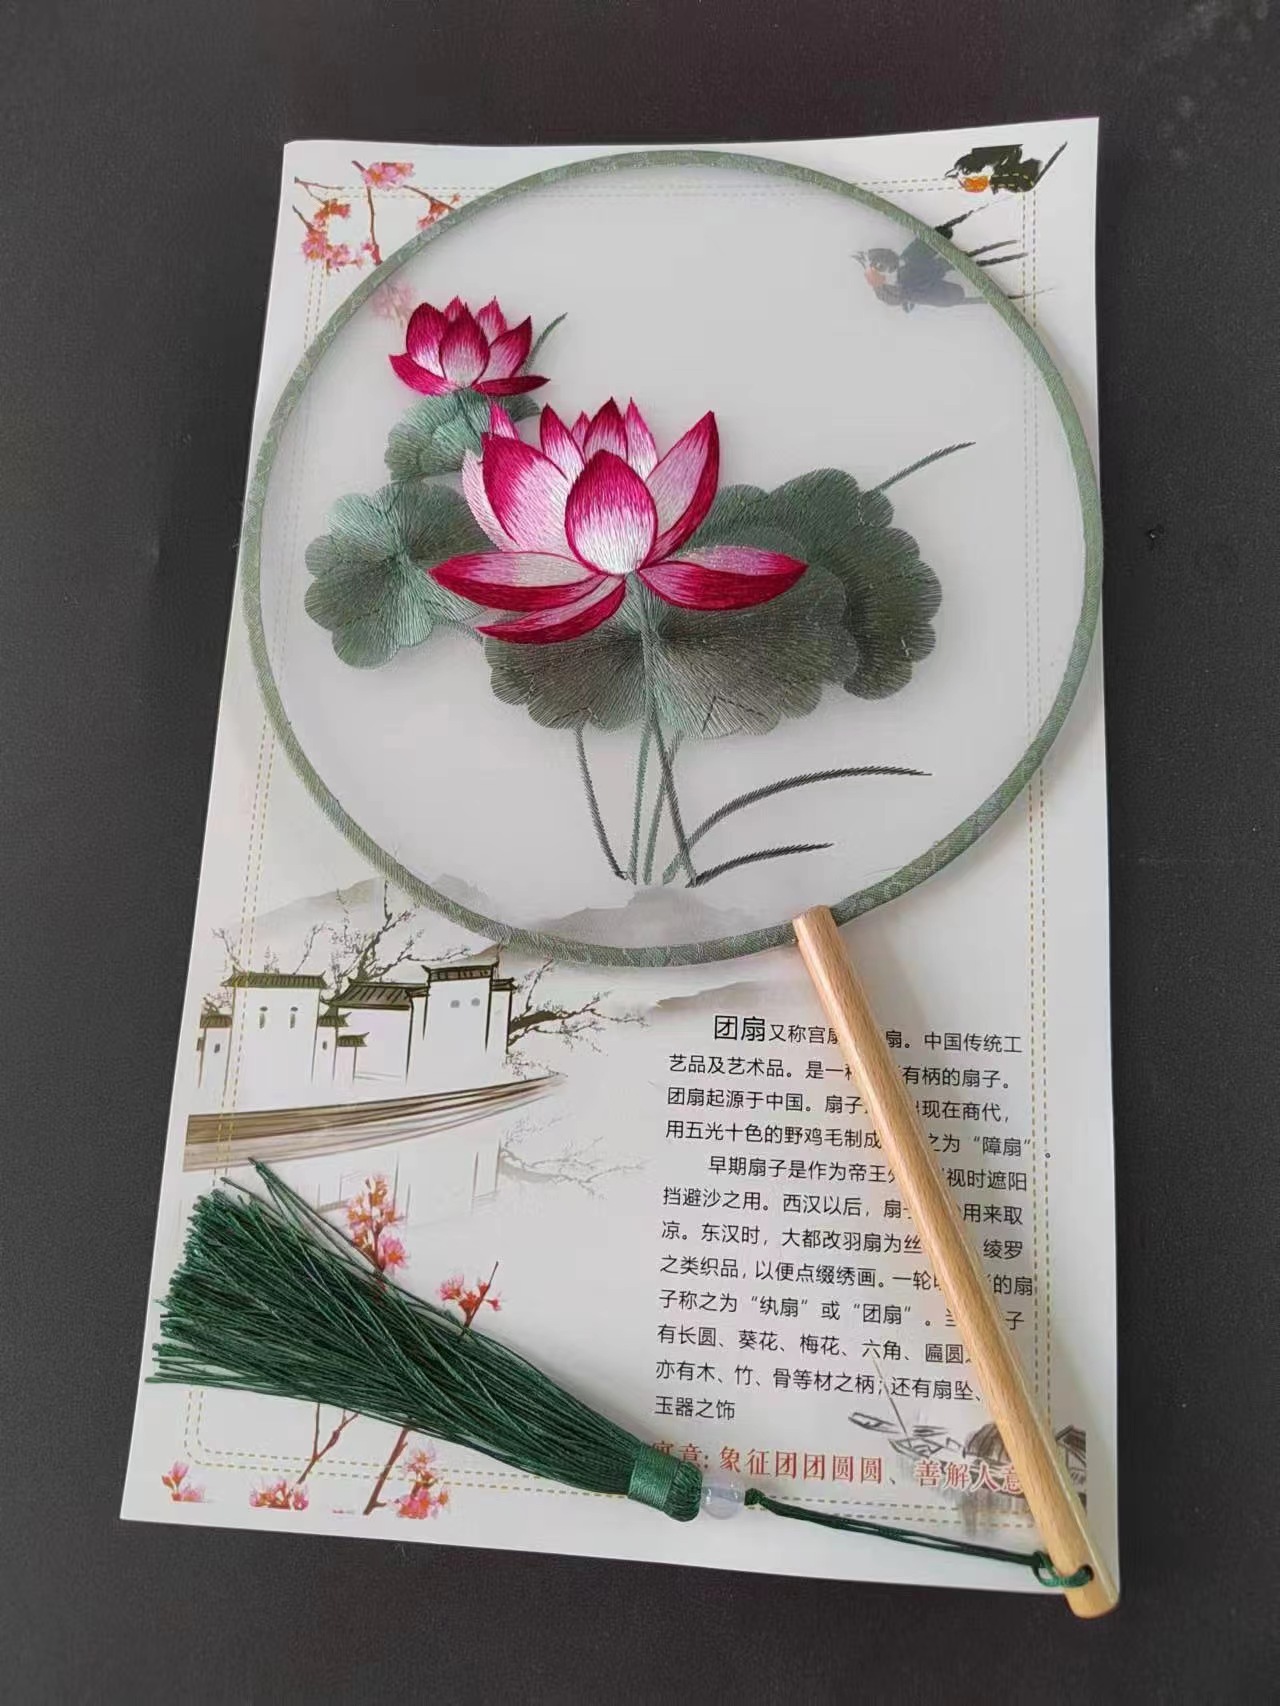 团扇又称宫 扇。中国传统工
艺品及艺术品。是一 有柄的扇子。
团扇起源于中国。扇子 现在商代，
用五光十色的野鸡毛制成 之为“障扇”。
早期扇子是作为帝王 视时遮阳
挡避沙之用。西汉以后，扇 用来取
凉。东汉时，大都改羽扇为丝 绫罗
之类织品，以便点缀绣画。一轮 的扇
子称之为“纨扇”或“团扇”。 子
有长圆、葵花、梅花、六角、匾圆
亦有木、竹、骨等材之柄；还有扇坠、
玉器之饰
意：象征团团圆圆、善解人意